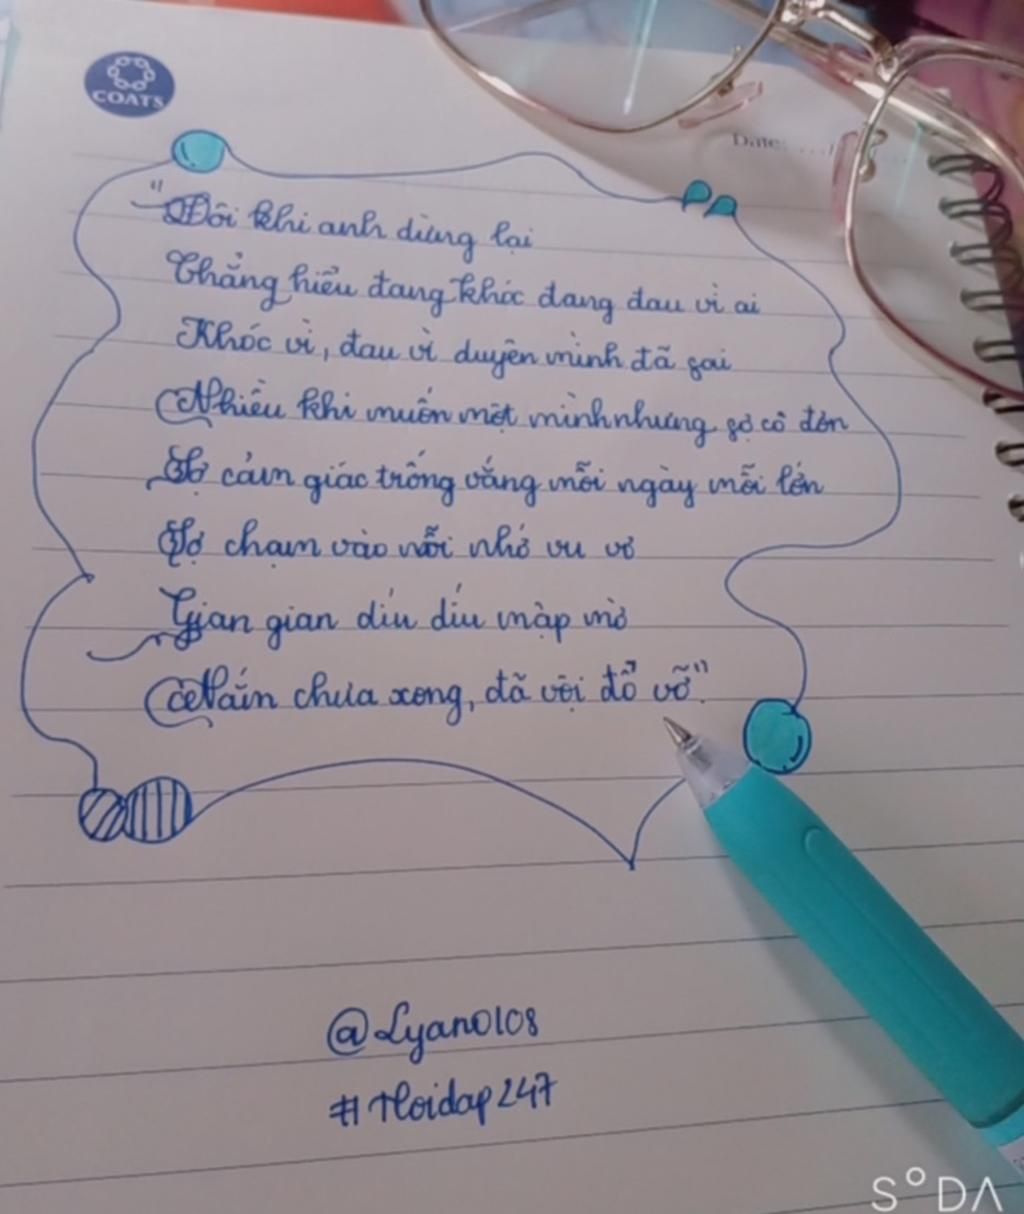 COATS
Date: ...
"Đôi khi anh dừng lại
Chẳng hiểu đang khóc đang đau vì ai
Khóc vì, đau vì duyên mình đã sai
Nhiều khi muốn một mình nhưng sợ cô đơn
Sợ cảm giác trống vắng mỗi ngày mỗi lớn
Sợ chạm vào nỗi nhớ vu vơ
Gian gian díu díu mập mờ
Nắm chưa xong, đã vội đổ vỡ".
@Lyan0108
#Hoidap247
SODA